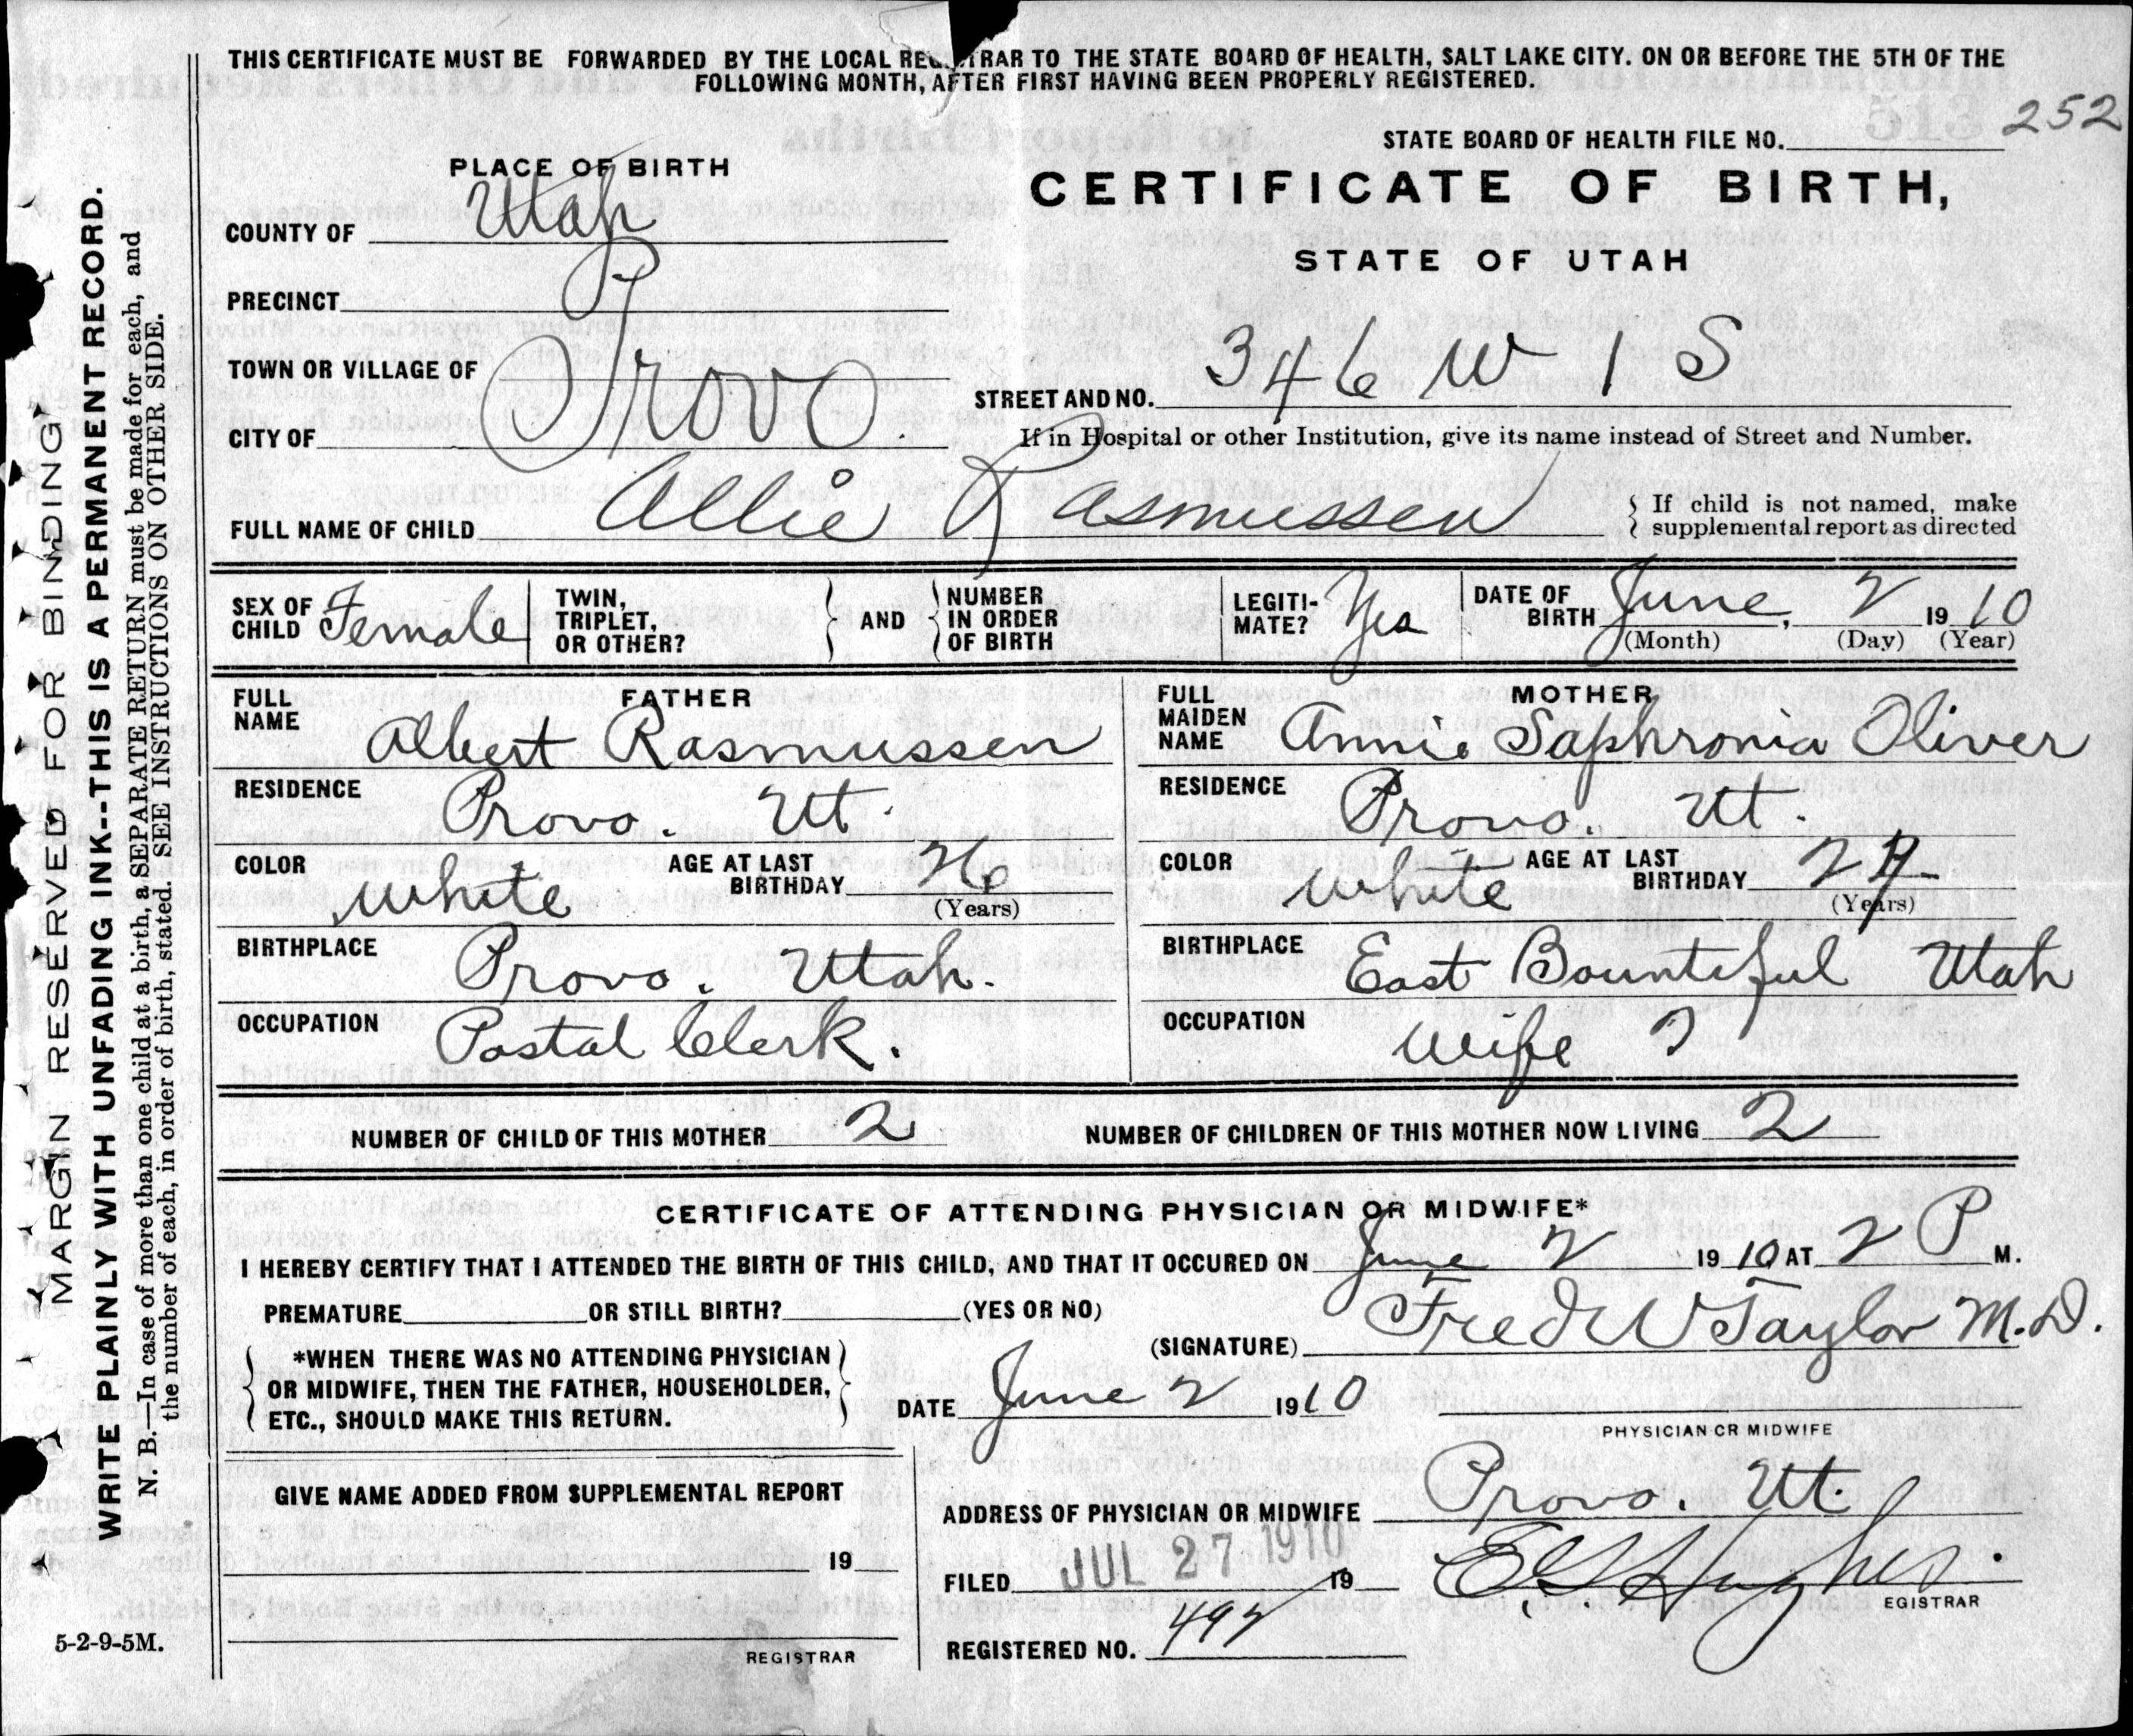 THIS CERTIFICATE MUST BE FORWARDED BY THE LOCAL REGISTRAR TO THE STATE BOARD OF HEALTH, SALT LAKE CITY. ON OR BEFORE THE 5TH OF THE
FOLLOWING MONTH, AFTER FIRST HAVING BEEN PROPERLY REGISTERED.
STATE BOARD OF HEALTH FILE NO. 252
PLACE OF BIRTH
CERTIFICATE OF BIRTH,
STATE OF UTAH
COUNTY OF Utah
PRECINCT
TOWN OR VILLAGE OF
CITY OF Provo.
STREET AND NO. 346 W 1 S
If in Hospital or other Institution, give its name instead of Street and Number.
FULL NAME OF CHILD Allie Rasmussen
If child is not named, make
supplemental report as directed
SEX OF CHILD Female
TWIN, TRIPLET, OR OTHER?
AND
NUMBER IN ORDER OF BIRTH
LEGITI-MATE? Yes
DATE OF BIRTH June, 2 1910
(Month) (Day) (Year)
FATHER
FULL NAME Albert Rasmussen
RESIDENCE Provo. Ut.
COLOR White AGE AT LAST BIRTHDAY 26
(Years)
BIRTHPLACE Provo. Utah.
OCCUPATION Postal Clerk.
MOTHER
FULL MAIDEN NAME Annie Saphronia Oliver
RESIDENCE Provo. Ut.
COLOR White AGE AT LAST BIRTHDAY
(Years)
BIRTHPLACE East Bountiful Utah
OCCUPATION Wife
NUMBER OF CHILD OF THIS MOTHER 2
NUMBER OF CHILDREN OF THIS MOTHER NOW LIVING 2
CERTIFICATE OF ATTENDING PHYSICIAN OR MIDWIFE*
I HEREBY CERTIFY THAT I ATTENDED THE BIRTH OF THIS CHILD, AND THAT IT OCCURED ON June 2 1910 AT 2 P M.
PREMATURE OR STILL BIRTH? (YES OR NO)
(SIGNATURE) Fred W Taylor M.D.
*WHEN THERE WAS NO ATTENDING PHYSICIAN
OR MIDWIFE, THEN THE FATHER, HOUSEHOLDER,
ETC., SHOULD MAKE THIS RETURN.
DATE June 2 1910
PHYSICIAN OR MIDWIFE
GIVE NAME ADDED FROM SUPPLEMENTAL REPORT
19
REGISTRAR
ADDRESS OF PHYSICIAN OR MIDWIFE Provo. Ut.
FILED JUL 27 1910 19
E G Hughes.
EGISTRAR
REGISTERED NO.
5-2-9-5M.
MARGIN RESERVED FOR BINDING
WRITE PLAINLY WITH UNFADING INK--THIS IS A PERMANENT RECORD.
N. B.—In case of more than one child at a birth, a SEPARATE RETURN must be made for each, and
the number of each, in order of birth, stated. SEE INSTRUCTIONS ON OTHER SIDE.